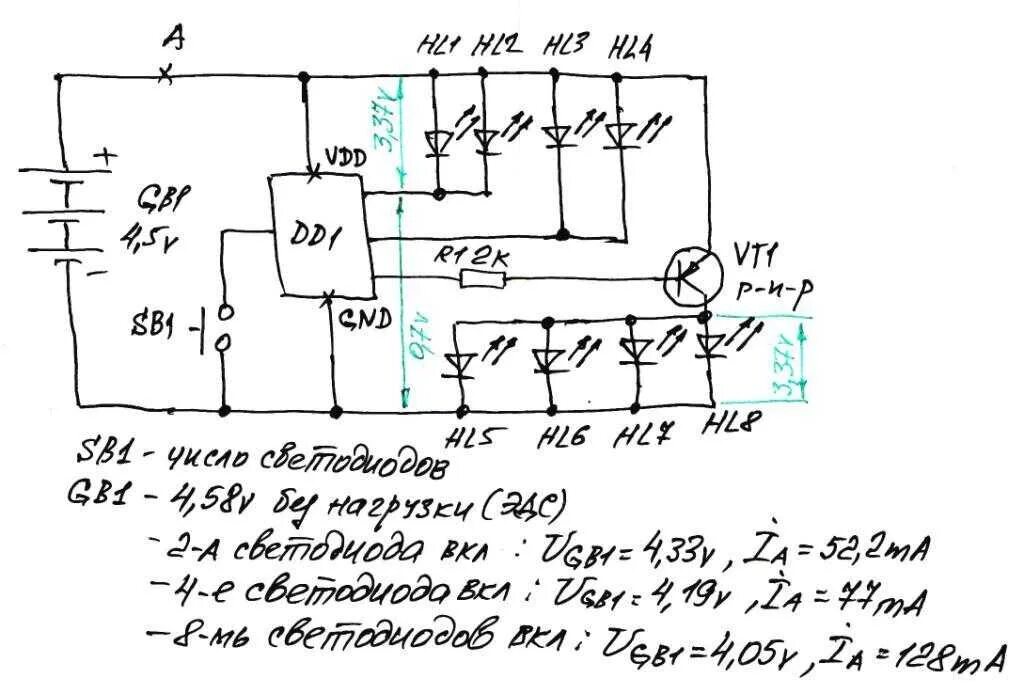 A
HL1 HL2 HL3 HL4
3,37v
VDD
+
GB1
4,5v
−
DD1
R1 2K
VT1
p-n-p
SB1
GND
0,7v
3,37v
HL5 HL6 HL7 HL8
SB1 - число светодиодов
GB1 - 4,58v без нагрузки (ЭДС)
- 2-А светодиода вкл : UGB1 = 4,33v, IA = 52,2mA
- 4-е светодиода вкл : UGB1 = 4,19v, IA = 77mA
- 8-мь светодиодов вкл : UGB1 = 4,05v, IA = 128mA